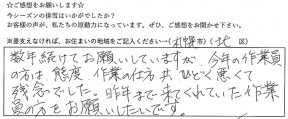 ☆ご感想をお願いします☆
今シーズンの排雪はいかがでしたか？
お客様の声が、私たちの原動力になっています。ぜひ、ご感想をお聞かせ下さい。
※差支えなければ、お住まいの地域をご記入ください→（札幌市）（北 区）
数年続けてお願いしていますが、今年の作業員
の方は態度、作業の仕方共ひどく悪くて
残念でした。昨年まで来てくれていた作業
員の方をお願いしたいです。